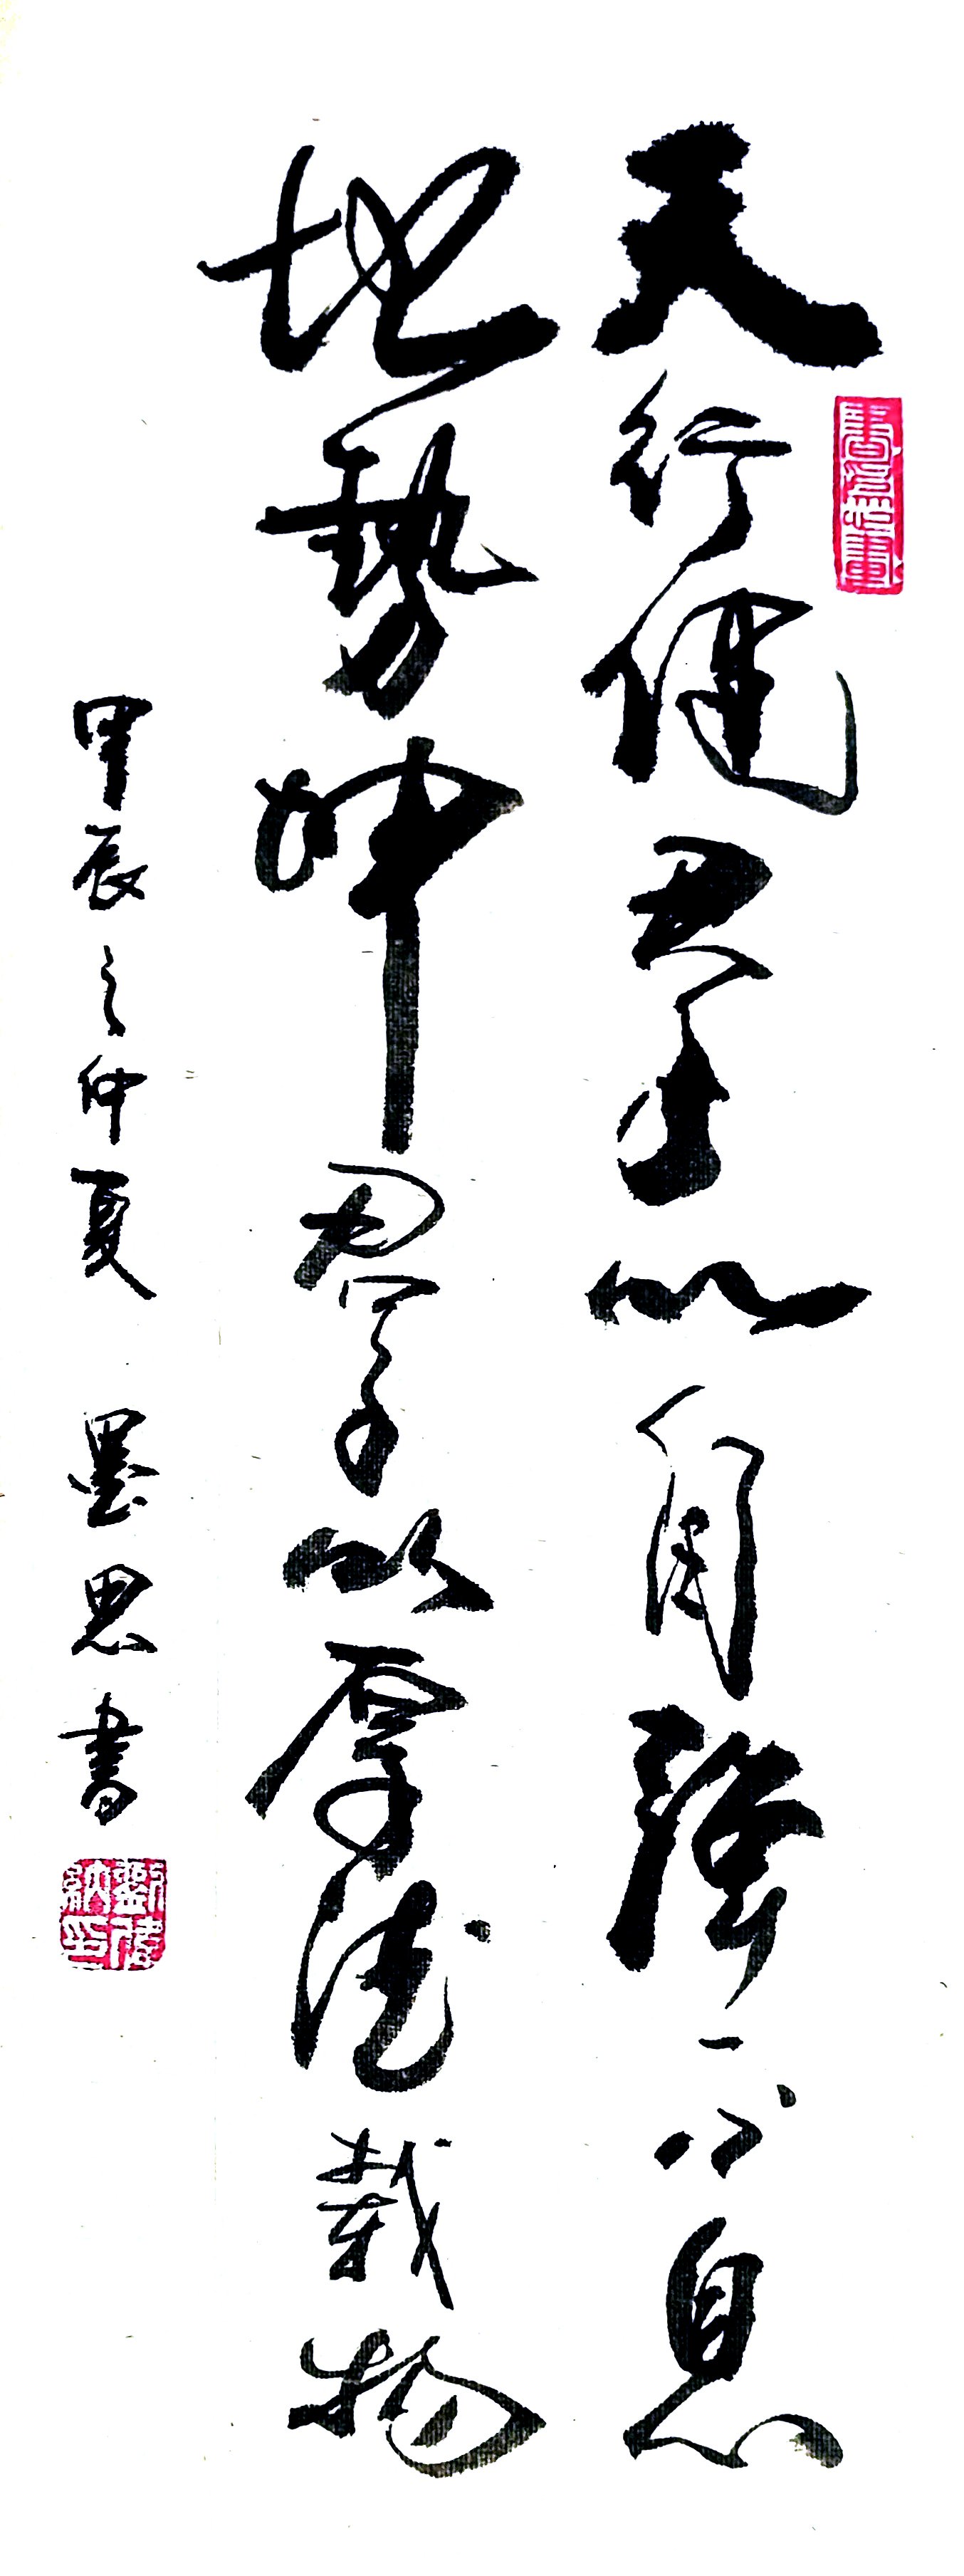 天行健君子以自强不息
地勢坤君子以厚德载物
甲辰之仲夏 墨思書